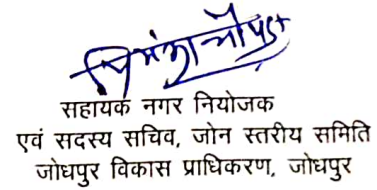 सहायक नगर नियोजक
एवं सदस्य सचिव, जोन स्तरीय समिति
जोधपुर विकास प्राधिकरण, जोधपुर